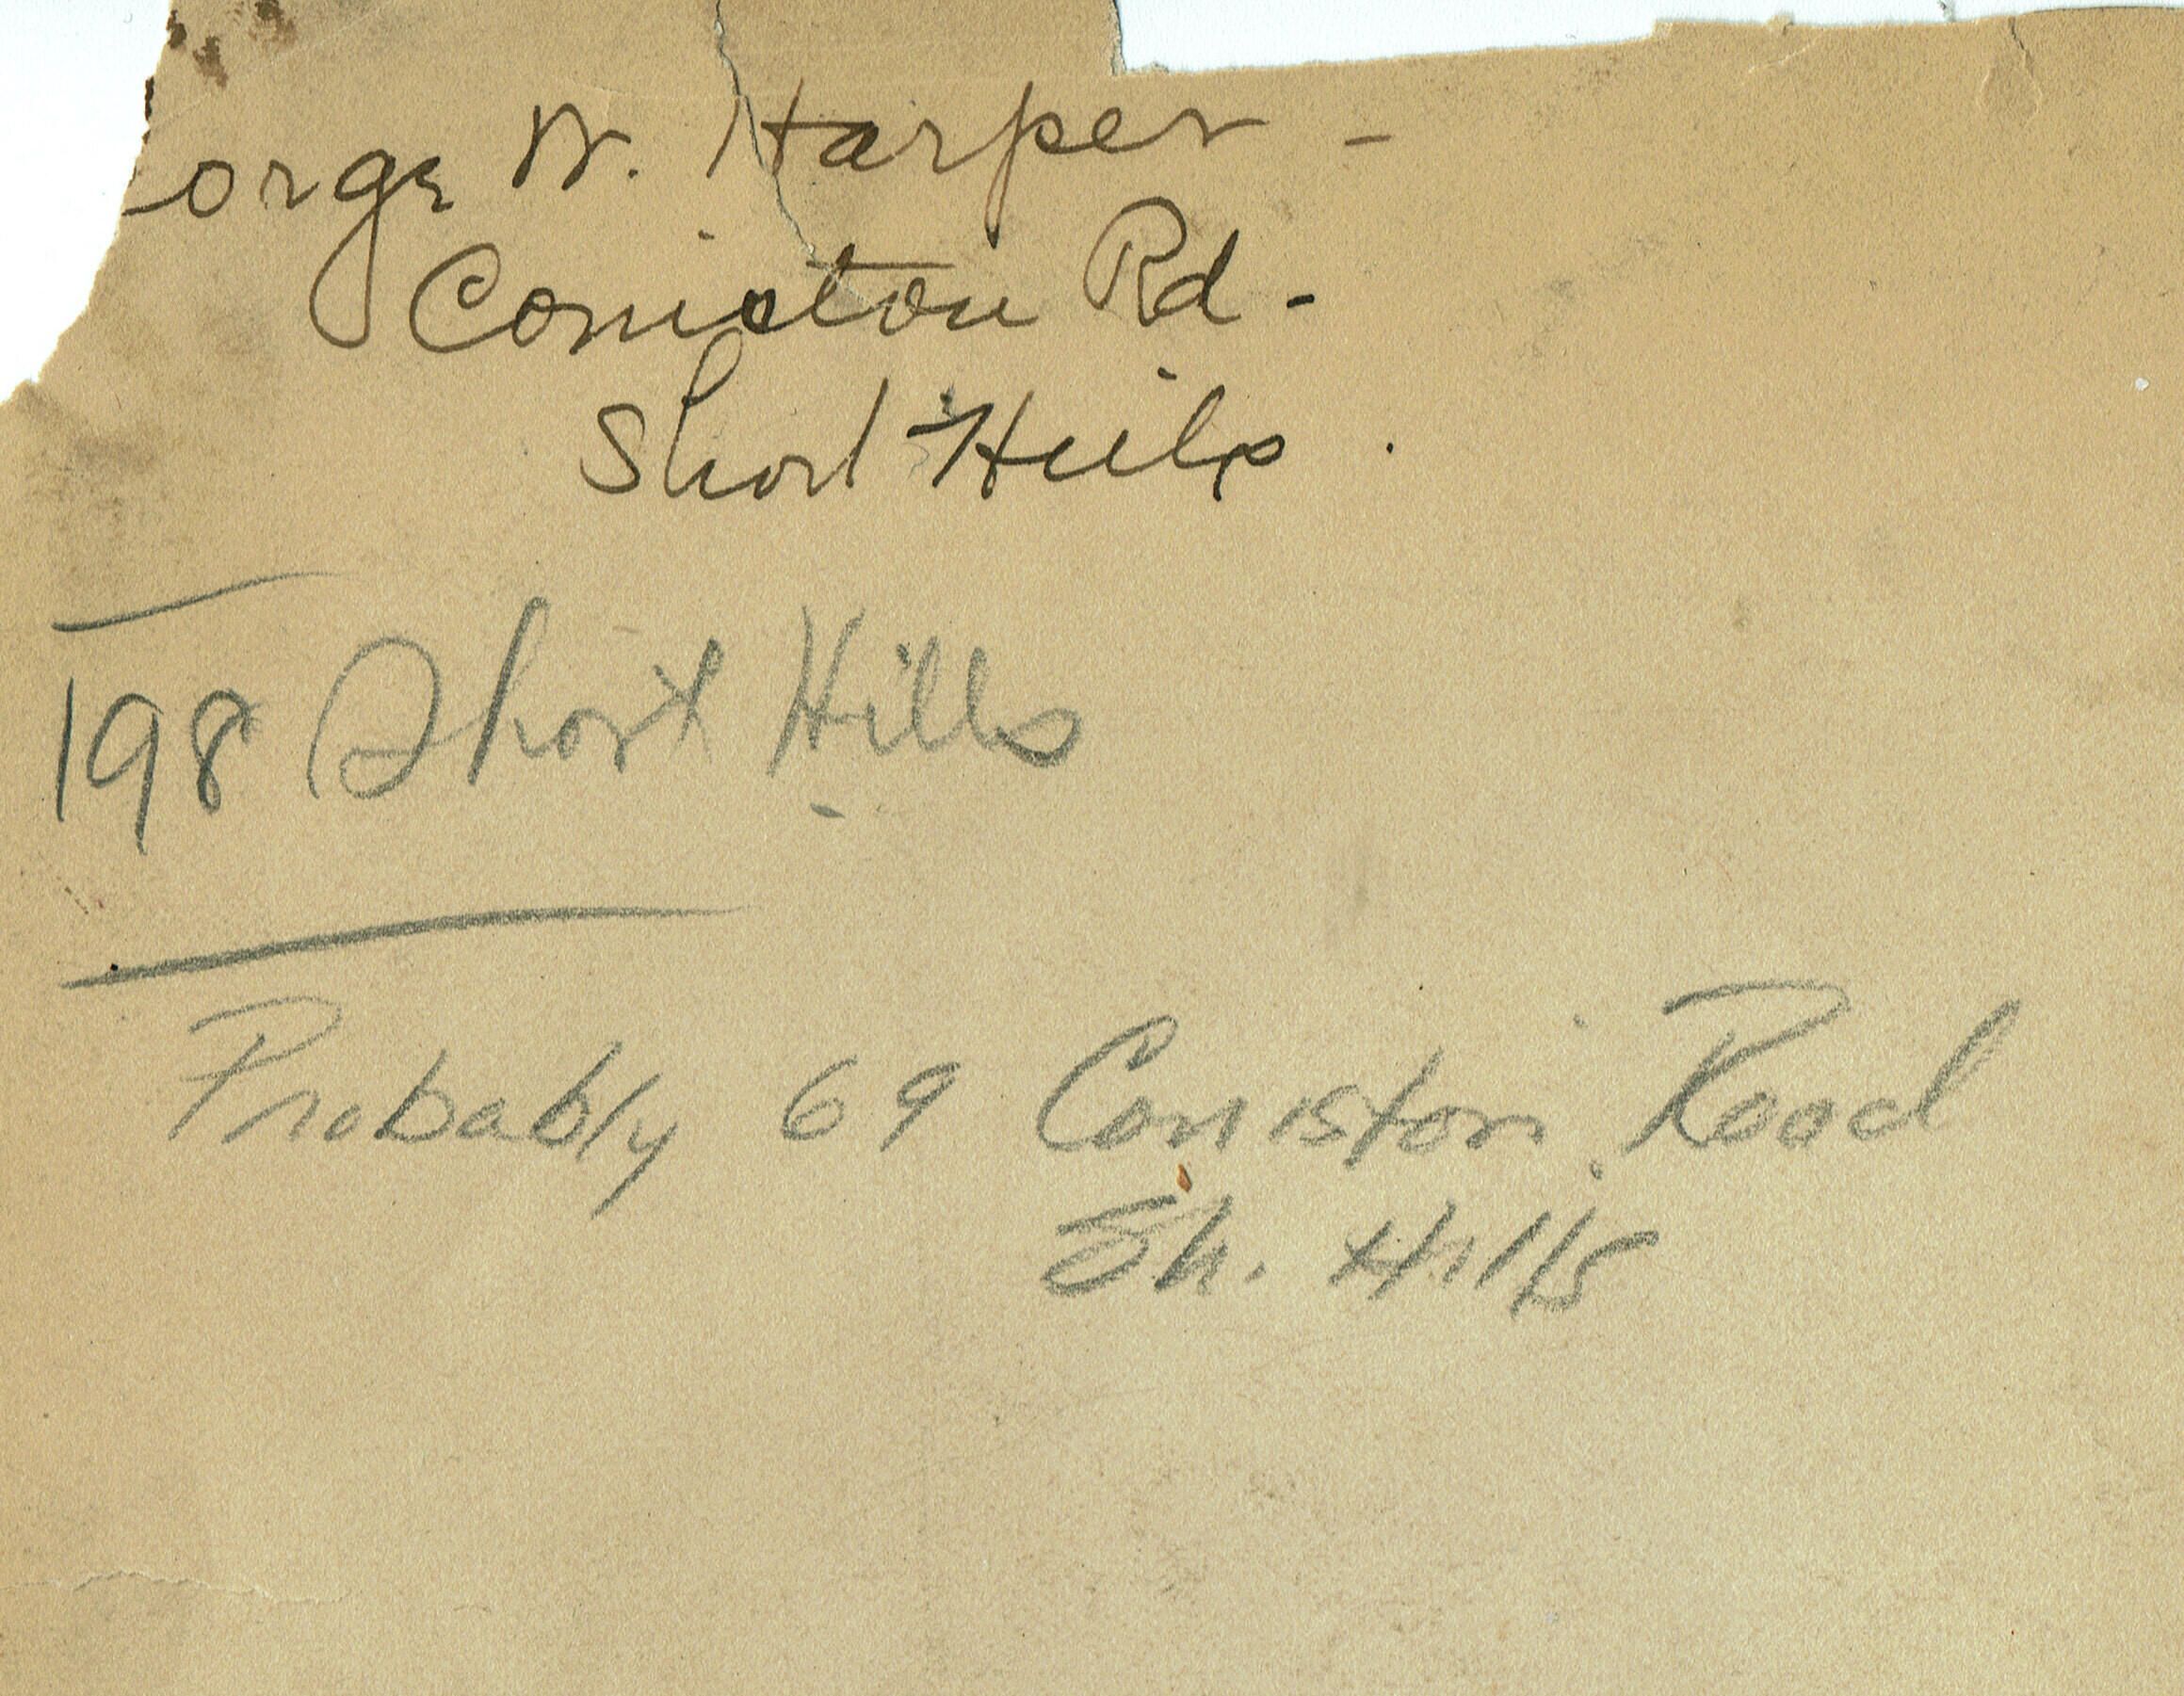 orge W. Harper -
Coniston Rd -
Short Hills .
198 Short Hills
Probably 69 Coniston Road
Sh. Hills